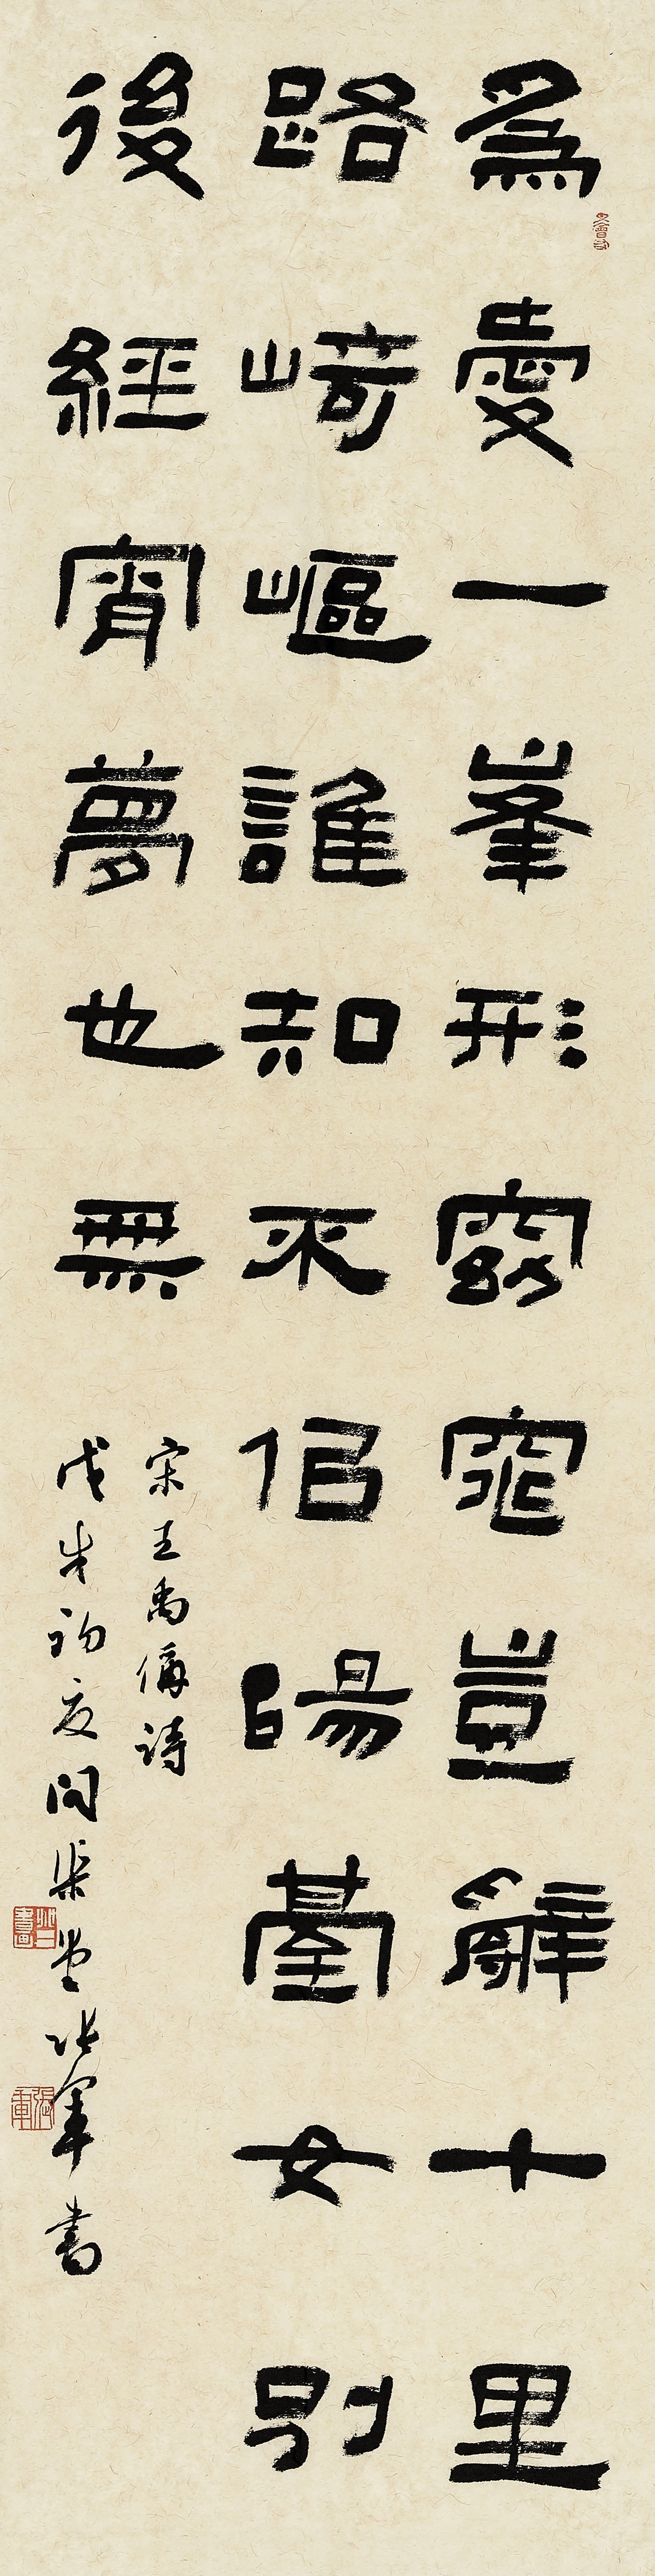 爲愛一峯形窈窕豈辭十里
路崎嶇誰知不佀陽臺女別
後經宵夢也無
宋王禹偁詩
戊戌初夏問渠堂張軍書
張軍